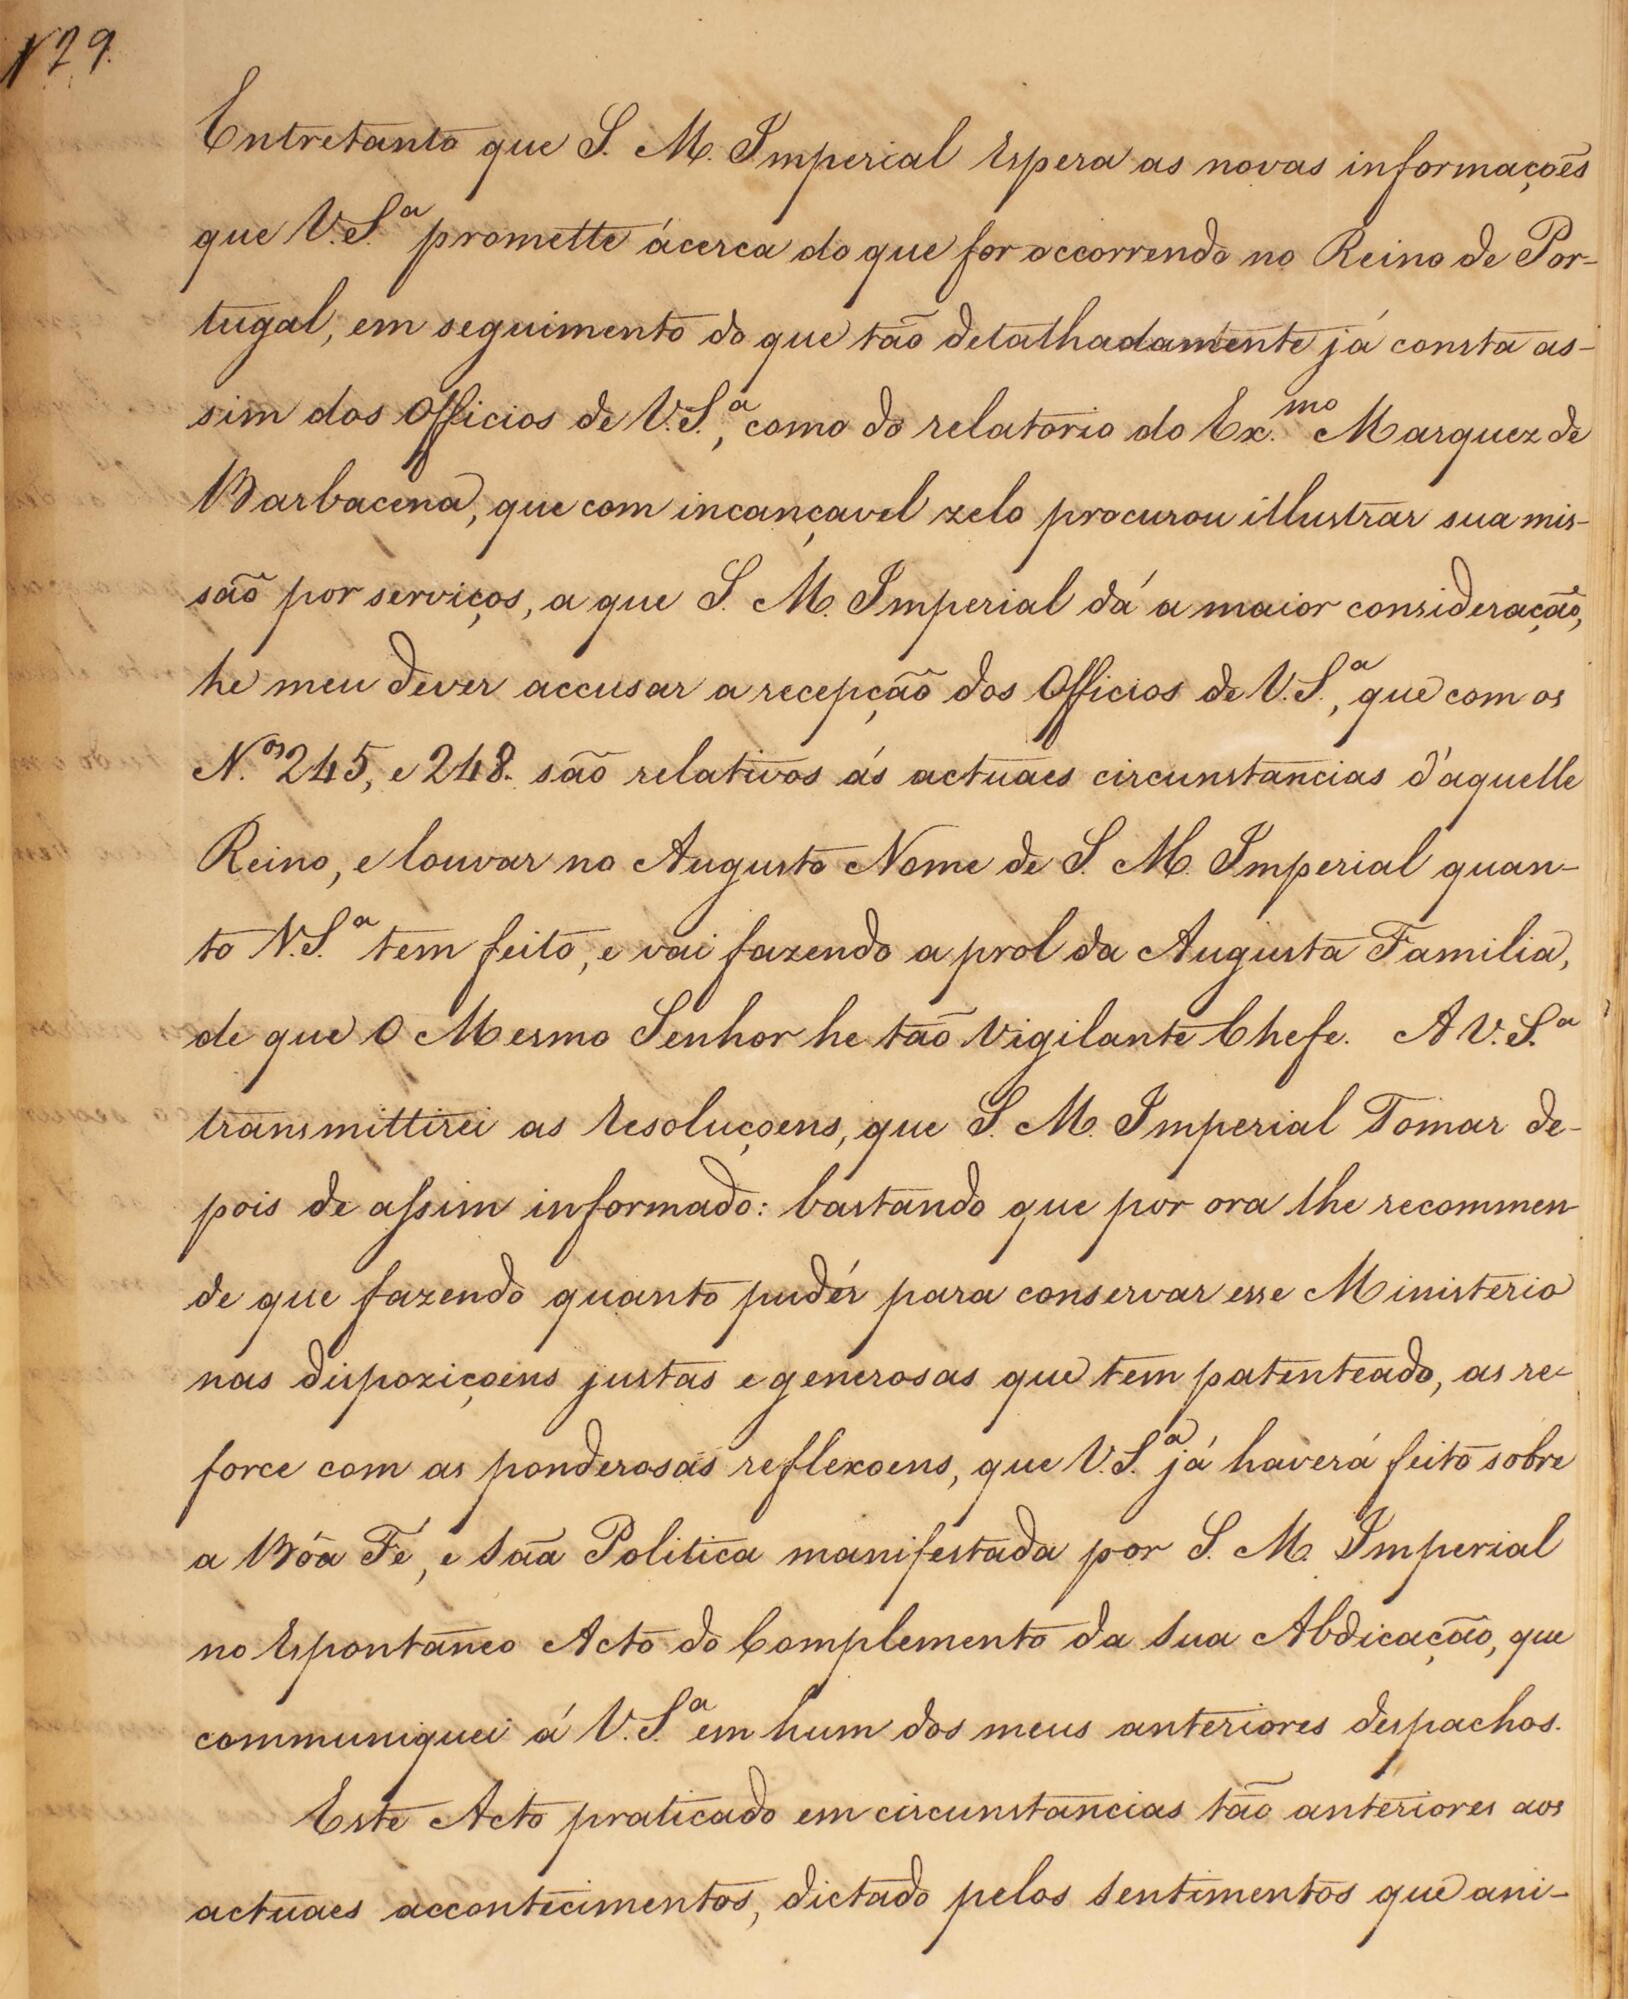 129.
Entretanto que S. M. Imperial Espera as novas informações
que V.S.ª promette ácerca do que for occorrendo no Reino de Por-
tugal, em seguimento do que tão detalhadamente já consta as-
sim dos Officios de V.S.ª, como do relatorio do Ex.mo Marquez de
Barbacena, que com incançavel zelo procurou illustrar sua mis-
são por serviços, a que S. M. Imperial dá a maior consideração,
he meu dever accusar a recepção dos Officios de V.S.ª, que com os
N.os 245, e 248. são relativos ás actuaes circunstancias d'aquelle
Reino, e louvar no Augusto Nome de S. M. Imperial quan-
to V.S.ª tem feito, e vai fazendo a prol da Augusta Familia,
de que O Mesmo Senhor he tão Vigilante Chefe. A V.S.ª
transmittirei as Resoluçoens, que S. M. Imperial Tomar de-
pois de assim informado: bastando que por ora lhe recommen
de que fazendo quanto pudér para conservar esse Ministerio
nas dispoziçoens justas e generosas que tem patenteado, as re-
force com as ponderosas reflexoens, que V.S.ª já haverá feito sobre
a Bôa Fé, e Sãa Politica manifestada por S. M. Imperial
no Espontaneo Acto do Complemento da Sua Abdicação, que
communiquei á V.S.ª em hum dos meus anteriores despachos.
Este Acto praticado em circunstancias tão anteriores aos
actuaes accontecimentos, dictado pelos Sentimentos que ani-